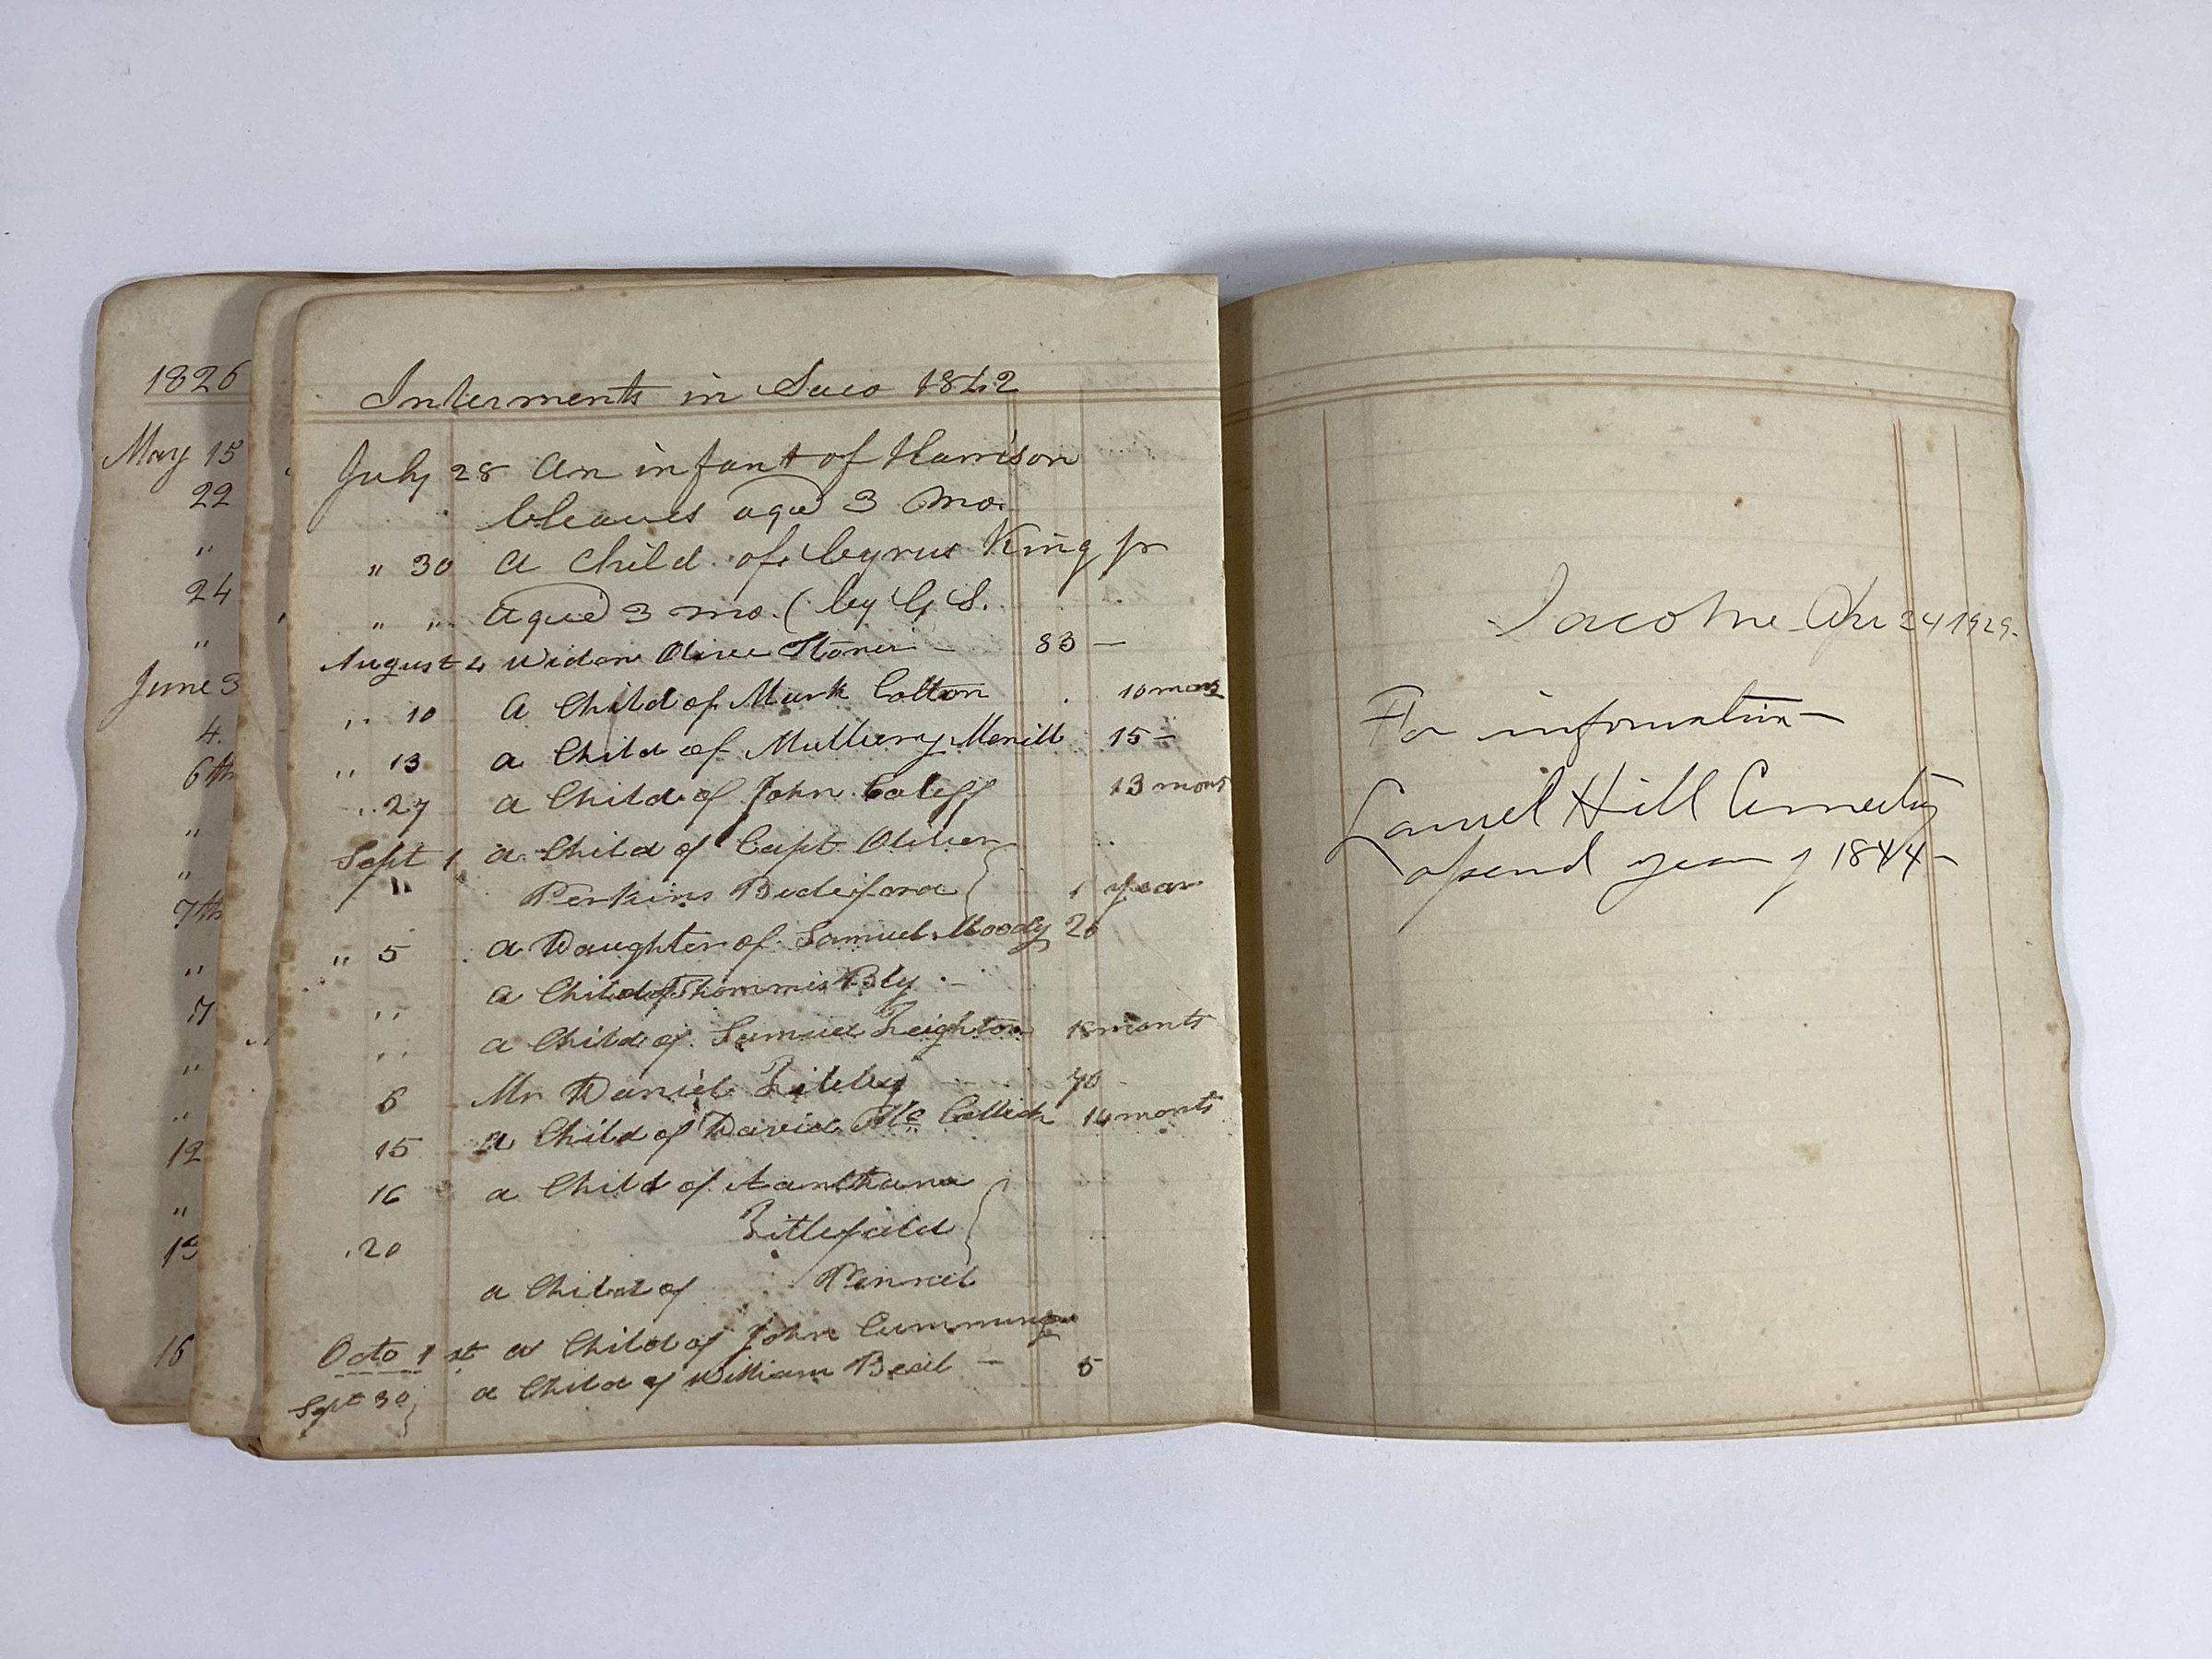 1826
May 15
22
"
24
"
June 3
4.
6th
"
"
7th
"
7
"
"
12
"
13
16
Interments in Saco 1842
July 28 An infant of Harrison
Cleaves aged 3 mo.
" 30 A Child of Cyrus King jr
" " aged 3 mo. ( by G S.
August 4 Widow Olive - 83 -
" 10 A Child of Mark Cotton 10 mons
" 13 a Child of Merrill 15 -
" 27 a Child of John Caleff 13 mons
Sept 1 a Child of Capt Oliver
" Perkins Bideford 1 year
" 5 a Daughter of Samuel Moody 20
" a Child of Thommis Bly -
" a Child of Samuel Leighton 18 monts
6 Mr Daniel 70
15 a Child of David Mc 14 monts
16 a Child of
Littlefield
20
a Child of
Octo 1 st a Child of John Cummings
Sept 30 a Child of William - 5
Saco Me Apr 24 1929.
For information -
Laurel Hill Cemetery
opend year of 1844 -